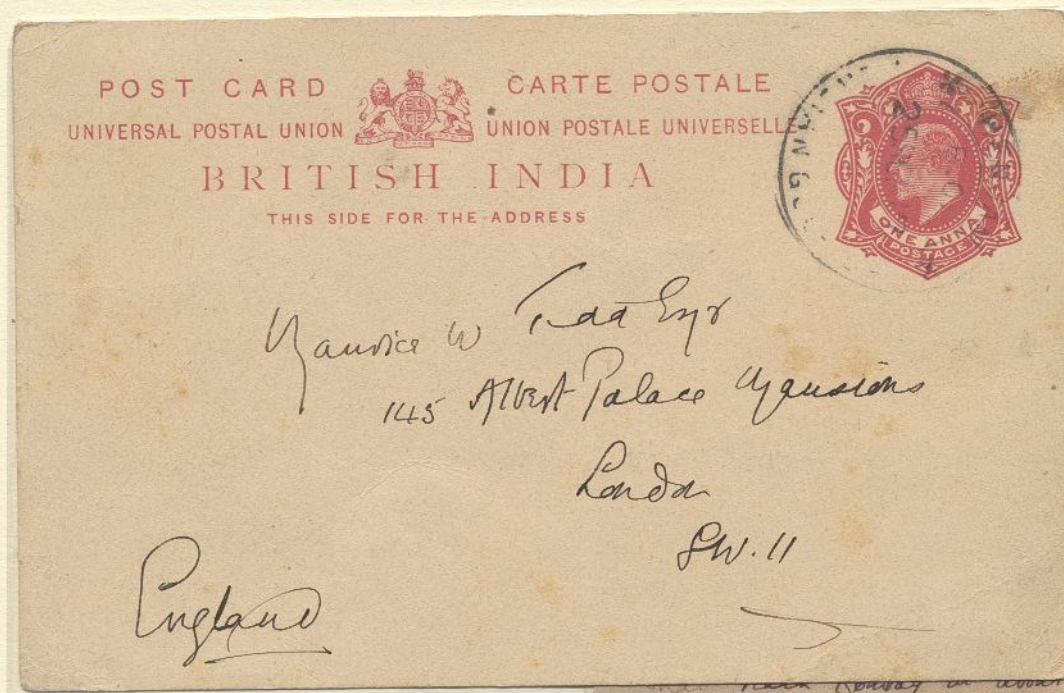 POST CARD CARTE POSTALE
UNIVERSAL POSTAL UNION UNION POSTALE UNIVERSELLE
BRITISH INDIA
THIS SIDE FOR THE ADDRESS
ONE ANNA
POSTAGE
Maurice W Tidd Esqr
145 Albert Palace Mansions
London
S.W. 11
England